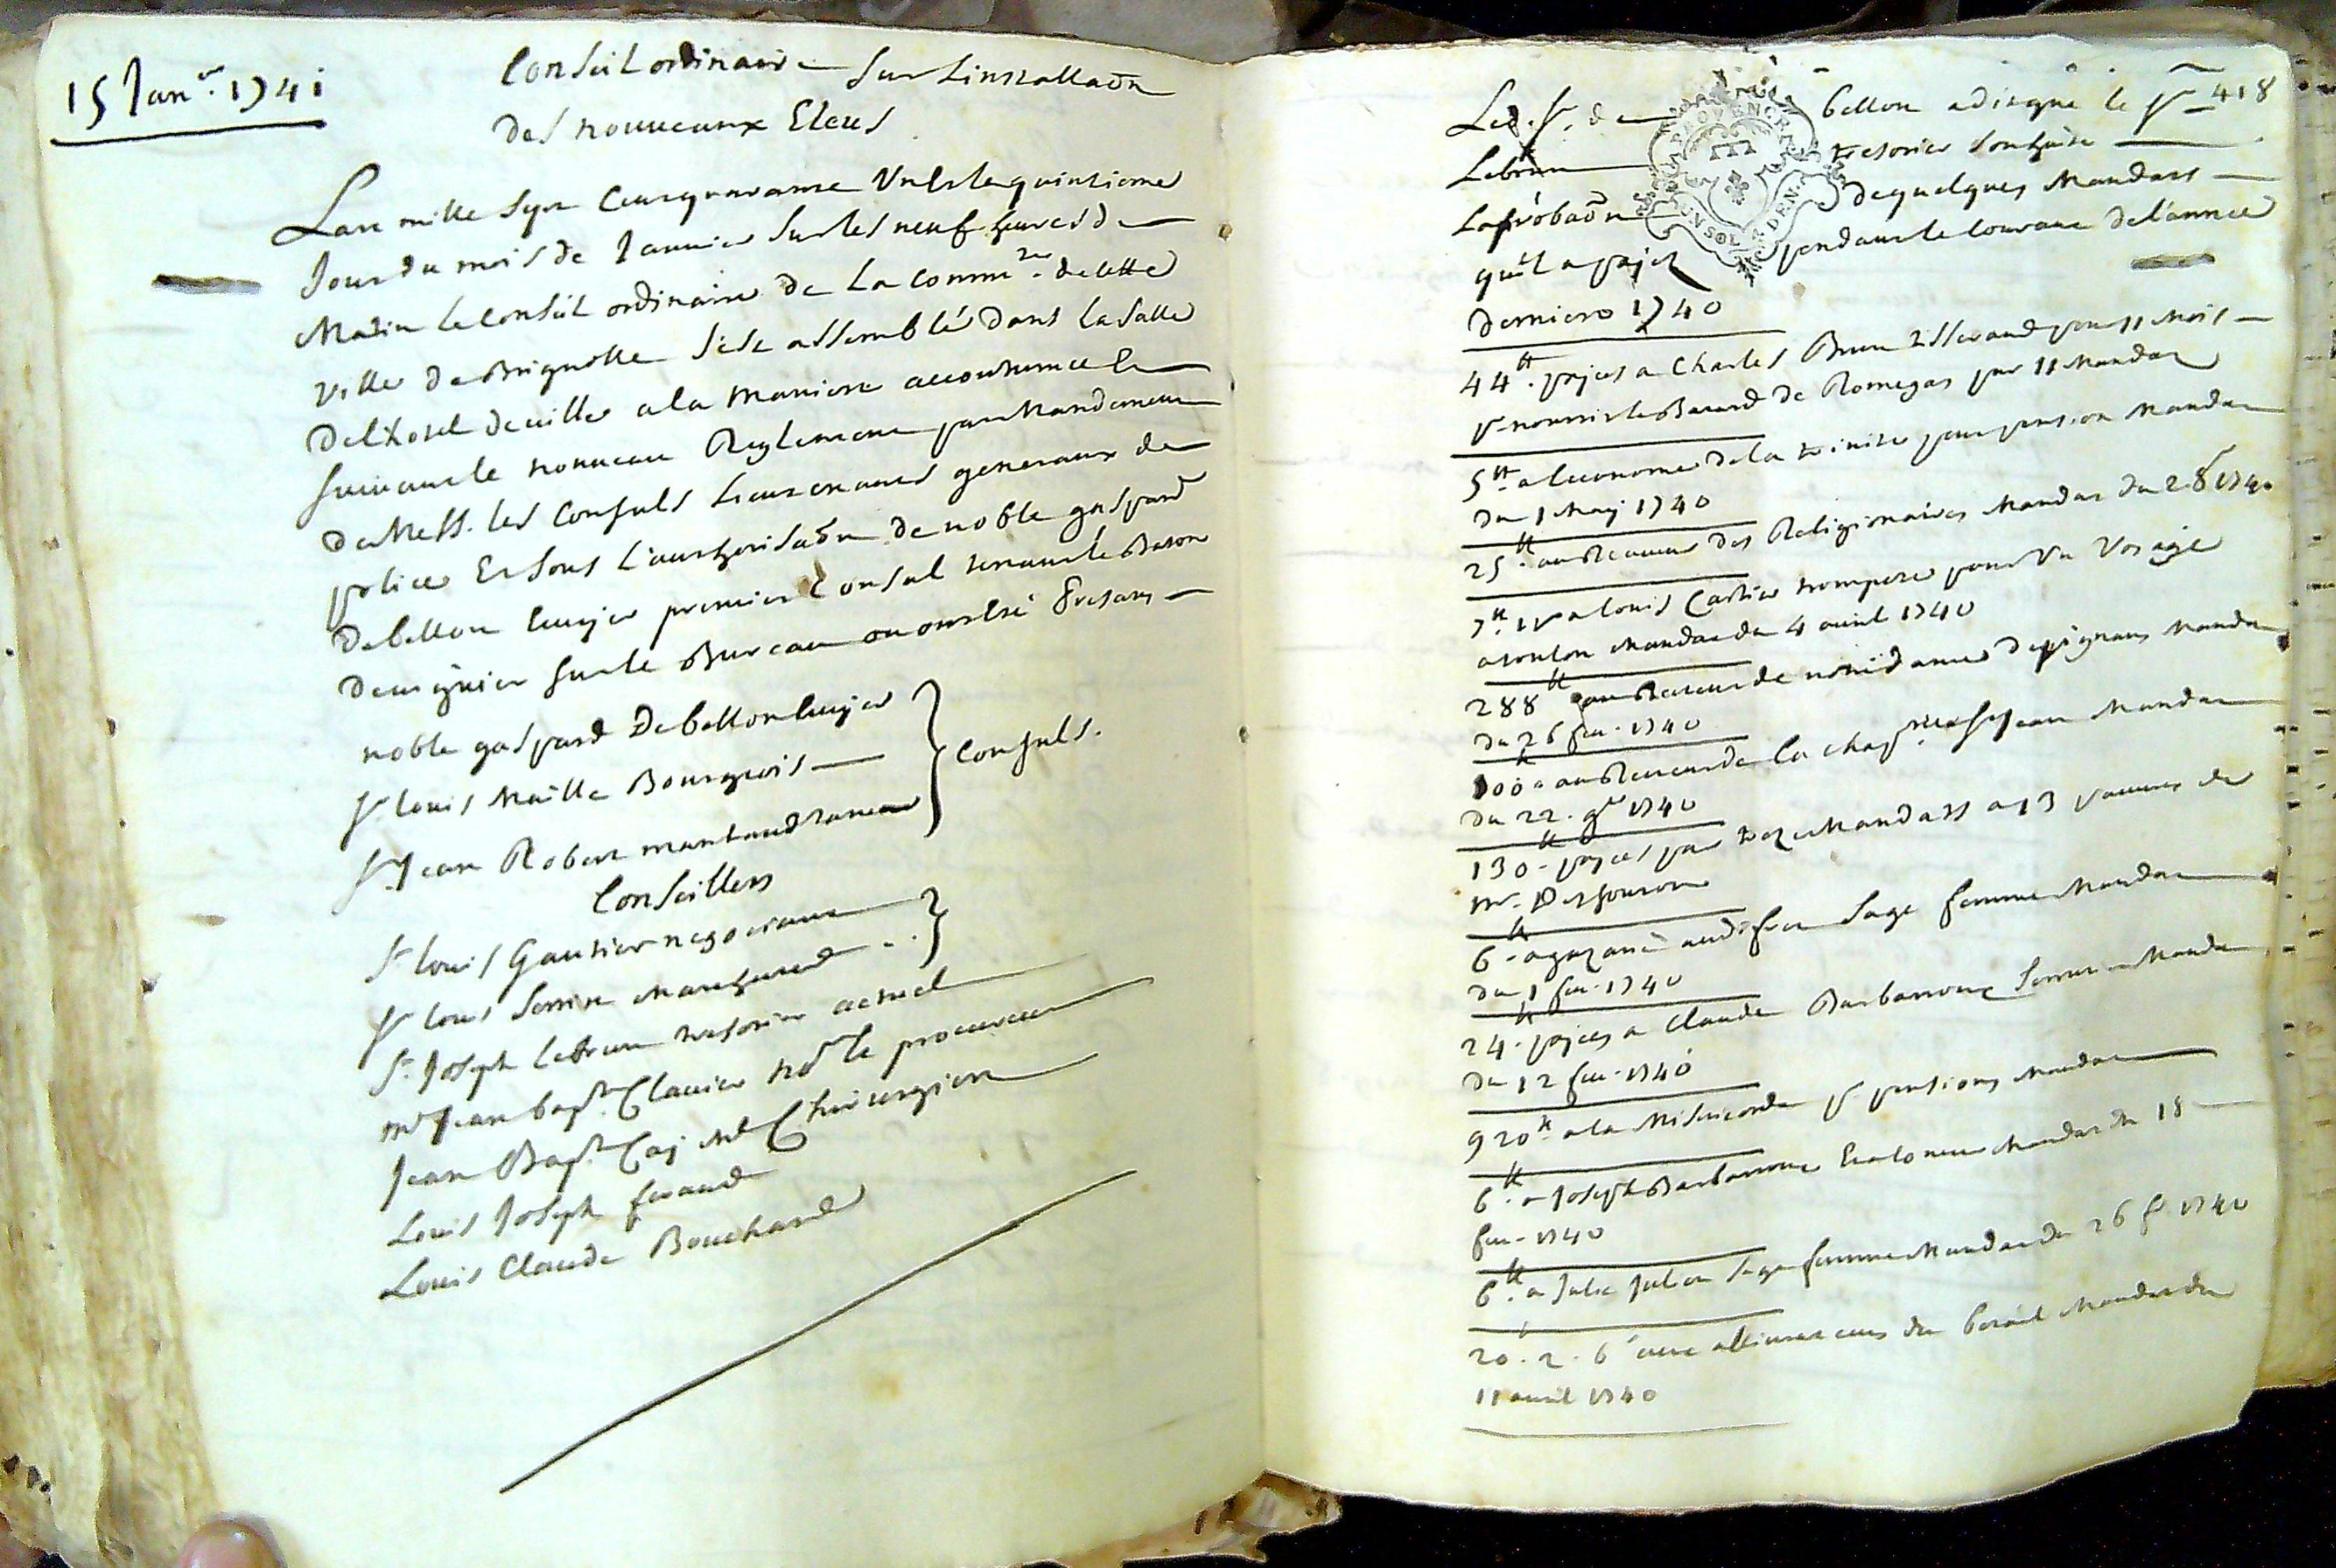 15 Janer. 1741
Conseil ordinaire sur Linstallaon
des nouueaux Eleus
Lan mille sept cens quarante Un et le quinsieme
Jour du mois de Januier sur les neuf heures de
Matin le conseil ordinaire de La comm.té de cette
Ville de Brignolle s'est assemblé dans la salle
de lhotel de uille a la maniere accoutumee et
suiuant le nouueau Reglement par Mandement
de Mess. les Consuls Lieutenants generaux de
police Et sous l'authorisaon de noble gaspard
de bellon ecuyer premier Consul tenant le Baton
de uiguier sur le Bureau ou ont été presans
noble gaspard De bellon ecuyer
Sr louis Maille Bourgeois
Sr Jean Robert marchand
Consuls.
Conseillers
Sr louis Gautier negociant
Sr louis Serrin Marchand
Sr Joseph Lebrun tresorier actuel
mr Jean bapt. Clauier nore procureur
Jean Bapt. Caj Me Chirurgien
Louis Joseph feraud
Louis Claude Bouchard
418
Led. Sr. de bellon a dit que le Sr
Lebrun tresorier souhaite
Laprobaon de quelques Mandats
quil a payez pendant le courant de lannee
derniere 1740
44tt. payees a Charles Brun tisserand pour 11 Mois
pr nourrir le Batard de Romegas par 11 Mandat
5tt. a leconome de la trinite pour pension Mandat
du 1 May 1740
25tt. au Receueur des Religionaires Mandat du 2 8r 1740
a louis Cartier trompete pour Un Voyage
a toulon Mandat du 4 auril 1740
288tt au Recteur de notre dame de pignans Mandat
du 26 feu. 1740
100tt au Receueur de la St Jean Mandat
du 22. 9re 1740
130tt payees par treze Mandats a 13 pauures de
mr.
6tt a audifren sage femme Mandat
du 1 feu. 1740
24tt. payees a Claude Barbarroux Mandat
du 12 feu. 1740
920tt a la Misericorde pr pensions Mandat
6tt. a Joseph Barbarroux Mandat du 18
feu. 1740
6tt. a Julie Julien sage femme Mandat du 26 f. 1740
20. 2. 6 aux du betail Mandat du
11 auril 1740